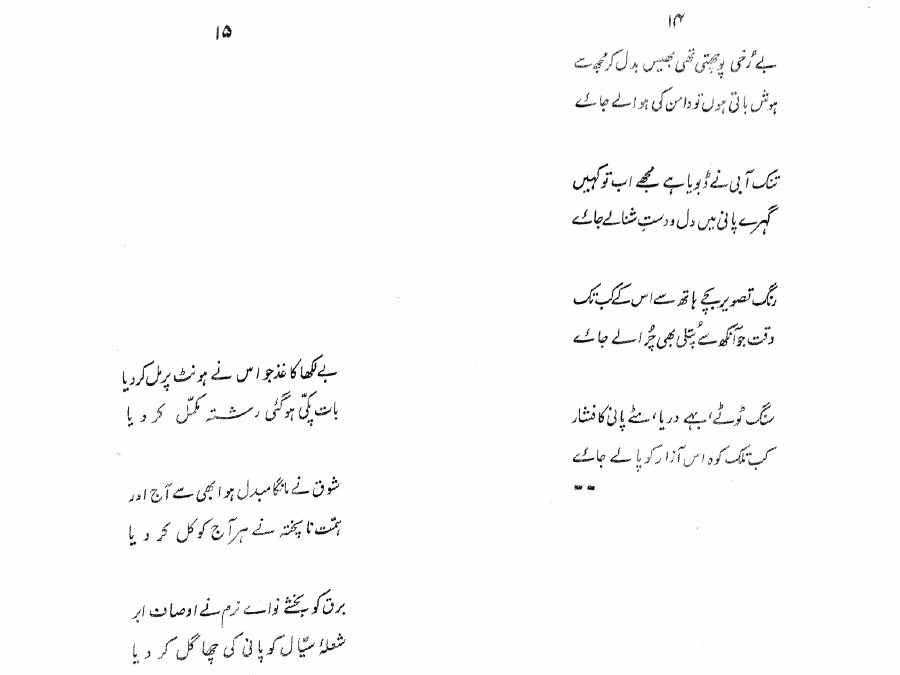 ۱۴
بے رُخی پوچھتی تھی بھیس بدل کر مجھ سے
ہوش باقی ہوں تو دامن کی ہوا لے جائے
تنک آبی نے ڈبویا ہے مجھے اب تو کہیں
گہرے پانی میں دل و دستِ شنا لے جائے
رنگ تصویر بچے ہاتھ سے اس کے کب تک
وقت جو آنکھ سے پُتلی بھی چُرا لے جائے
سنگ ٹوٹے، بہے دریا، مٹے پانی کا فشار
کب تلک کوہ اس آزار کو پالے جائے
۱۵
بے لکھا کاغذ جو اس نے ہونٹ پر مل کر دیا
بات پکّی ہو گئی رشتہ مکمّل کر دیا
شوق نے مانگا مبدل ہوا بھی سے آج اور
ہمّت ناپختہ نے ہر آج کو کل کر دیا
برق کو بخشے نواے نرم نے اوصاف ابر
شعلۂ سیّال کو پانی کی چھاگل کر دیا